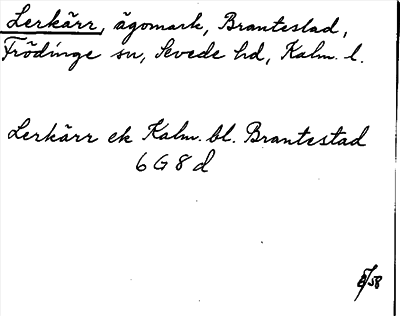 Lerkärr, ägomark, Brantestad,
Frödinge sn, Sevede hd, Kalm. l.
Lerkärr ek Kalm. bl. Brantestad
6 G 8 d